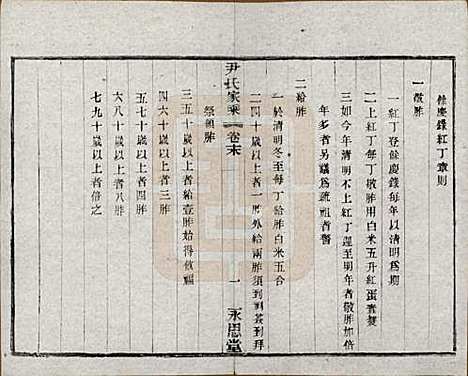 餘慶錄紅丁章則
一敬胙
一紅丁登餘慶錄每年以清明爲期
二上紅丁每丁敬胙用白米五升紅蛋壹雙
三如今年清明不上紅丁遲至明年者敬胙加倍
年多者另議爲疏祖者警
二給胙
一於清明冬至每丁給胙白米五合
二四十歲以上者一胙外給兩胙須到祠簽到拜
尹氏家乘 卷末 一 永思堂
祭領胙
三五十歲以上者給壹胙始得散福
四六十歲以上者三胙
五七十歲以上者四胙
六八十歲以上者八胙
七九十歲以上者倍之